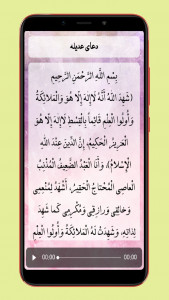 دعای عدیله
بِسْمِ اللَّهِ الرَّحْمَنِ الرَّحِیمِ
(شَهِدَ اللهُ أَنَّهُ لَا إِلهَ إِلَّا هُوَ وَالْمَلائِكَةُ
وَ أُولُوا الْعِلْمِ قَائِماً بِالْقِسْطِ لَا إِلهَ إِلَّا هُوَ
الْعَزِيزُ الْحَكِيمُ، إِنَّ الدِّينَ عِنْدَ اللَّهِ
الْإِسْلامُ)، وَ أَنَا الْعَبْدُ الضَّعِيفُ الْمُذْنِبُ
الْعَاصِى الْمُحْتَاجُ الْحَقِيرُ، أَشْهَدُ لِمُنْعِمِى
وَ خَالِقِى وَ رَازِقِى وَ مُكْرِمِى كَمَا شَهِدَ
لِذَاتِهِ، وَ شَهِدَتْ لَهُ الْمَلائِكَةُ وَ أُولُوا الْعِلْمِ
00:00 00:00